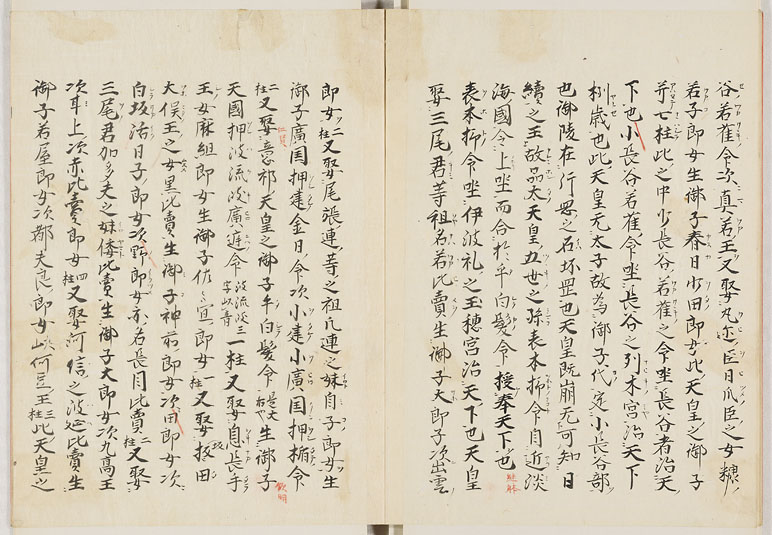 谷若雀命次真若王又娶丸迩臣日爪臣之女糠
若子郎女生御子春日少田郎女此天皇之御子
并七柱此之中少長谷若雀之命坐長谷者治天
下也小長谷若雀命坐長谷之列木宮治天下
捌歳也此天皇无太子故為御子代定小長谷部
也御陵在片罡之石坏罡也天皇既崩无可知日
續之王故品太天皇五世之孫袁本抒命自近淡
海國令上坐而合於手白髮命授奉天下也
袁本抒命坐伊波礼之玉穂宮治天下也天皇
娶三尾君等祖名若比賣生御子大郎子次出雲
郎女二柱又娶尾張連等之祖凡連之妹目子郎女生
御子廣国押建金日命次小建小廣国押楯命
二柱又娶意祁天皇之御子手白髮命是大后也生御子
天國押波流岐廣庭命波流岐三字以音一柱又娶息長手
王女麻組郎女生御子佐々宜郎女一柱又娶坂田
大俣王之女黒比賣生御子神前郎女次田郎女次
白坂活日子郎女次野郎女亦名長目比賣二柱又娶
三尾君加多夫之妹倭比賣生御子大郎女次丸高王
次耳上次赤比賣郎女四柱又娶阿倍之波延比賣生
御子若屋郎女次都夫良郎女次阿豆王三柱此天皇之